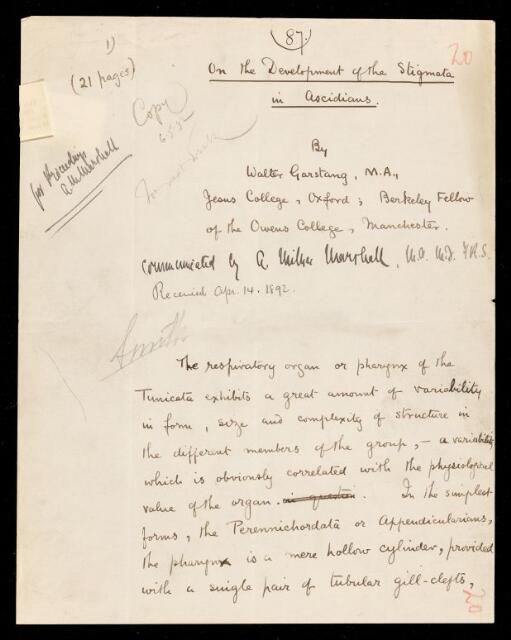 87.
1)
20
(21 pages)
On the Development of the Stigmata
in Ascidians.
Copy
6.5.92
for Proceedings
A. M. Marshall
By
Walter Garstang, M.A.,
Jesus College, Oxford; Berkeley Fellow
of the Owens College, Manchester.
Communicated by A. Milnes Marshall, M.A. M.D. F.R.S.
Received Apr. 14. 1892.
Smith
The respiratory organ or pharynx of the
Tunicata exhibits a great amount of variability
in form, size and complexity of structure in
the different members of the group, – a variability
which is obviously correlated with the physiological
value of the organ. in question. In the simplest
forms, the Perennichordata or Appendicularians,
the pharynx is a mere hollow cylinder, provided
with a single pair of tubular gill-clefts,
20